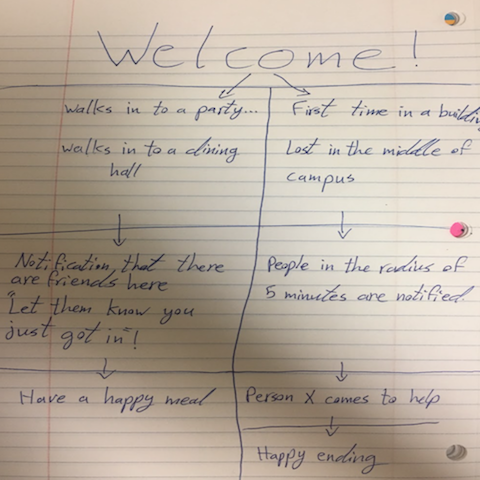 Welcome!
Walks in to a party...
Walks in to a dining
hall
Notification that there
are friends here
"Let them know you
just got in"!
Have a happy meal
First time in a building
Lost in the middle of
campus
People in the radius of
5 minutes are notified
Person X comes to help
Happy ending